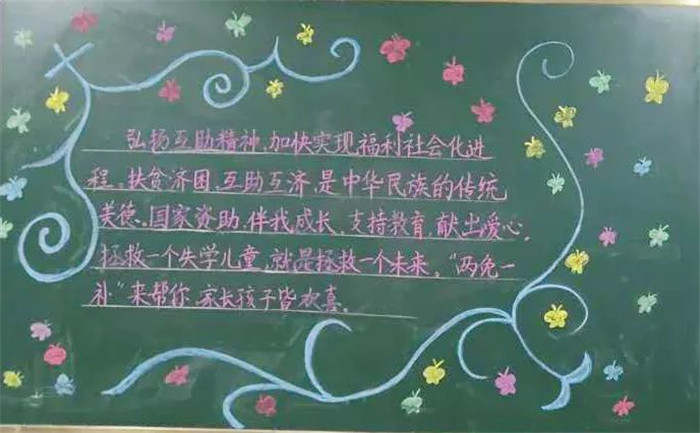 弘扬互助精神,加快实现福利社会化进
程。扶贫济困,互助互济,是中华民族的传统
美德。国家资助,伴我成长。支持教育,献出爱心。
拯救一个失学儿童,就是拯救一个未来。“两免一
补”来帮你,家长孩子皆欢喜。